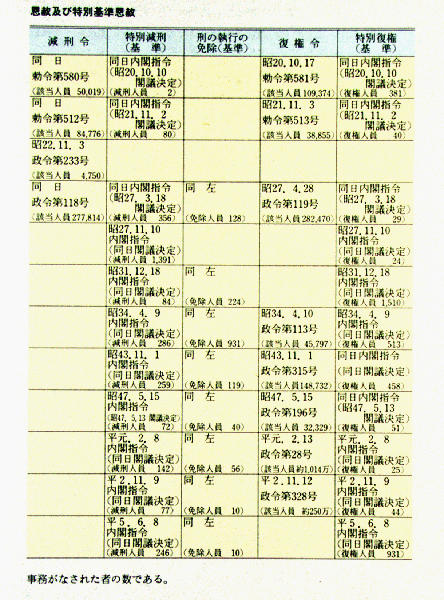 恩赦及び特別基準恩赦
減刑令 特別減刑(基準) 刑の執行の免除(基準) 復権令 特別復権(基準)
同日 同日内閣指令 昭20.10.17 同日内閣指令
勅令第580号 (昭20.10.10 勅令第581号 (昭20.10.10
閣議決定) 閣議決定)
(該当人員 50,019) (減刑人員 2) (該当人員109,374) (復権人員 381)
同日 同日内閣指令 昭21.11.3 同日内閣指令
勅令第512号 (昭21.11.2 勅令第513号 (昭21.11.2
閣議決定) 閣議決定)
(該当人員 84,776) (減刑人員 80) (該当人員 38,855) (復権人員 40)
昭22.11.3
政令第233号
(該当人員 4,750)
同日 同日内閣指令 同左 昭27.4.28 同日内閣指令
政令第118号 (昭27.3.18 政令第119号 (昭27.3.18
閣議決定) 閣議決定)
(該当人員277,814) (減刑人員 356) (免除人員 128) (該当人員282,470) (復権人員 29)
昭27.11.10 昭27.11.10
内閣指令 内閣指令
(同日閣議決定) (同日閣議決定)
(減刑人員 1,391) (復権人員 24)
昭31.12.18 同左 昭31.12.18
内閣指令 内閣指令
(同日閣議決定) (同日閣議決定)
(減刑人員 84) (免除人員 224) (復権人員 1,510)
昭34.4.9 同左 昭34.4.10 昭34.4.9
内閣指令 政令第113号 内閣指令
(同日閣議決定) (同日閣議決定)
(減刑人員 286) (免除人員 931) (該当人員 45,797) (復権人員 513)
昭43.11.1 同左 昭43.11.1 同日内閣指令
内閣指令 政令第315号
(同日閣議決定) (同日閣議決定)
(減刑人員 259) (免除人員 119) (該当人員148,732) (復権人員 458)
昭47.5.15 同左 昭47.5.15 同日内閣指令
内閣指令 政令第196号 (昭47.5.13
(昭47.5.13 閣議決定) 閣議決定)
(減刑人員 72) (免除人員 40) (該当人員 32,329) (復権人員 51)
平元.2.8 同左 平元.2.13 平元.2.8
内閣指令 政令第28号 内閣指令
(同日閣議決定) (同日閣議決定)
(減刑人員 142) (免除人員 56) (該当人員約1,014万) (復権人員 25)
平2.11.9 同左 平2.11.12 平2.11.9
内閣指令 政令第328号 内閣指令
(同日閣議決定) (同日閣議決定)
(減刑人員 77) (免除人員 10) (該当人員 約250万) (復権人員 44)
平5.6.8 同左 平5.6.8
内閣指令 内閣指令
(同日閣議決定) (同日閣議決定)
(減刑人員 246) (免除人員 10) (復権人員 931)
事務がなされた者の数である。